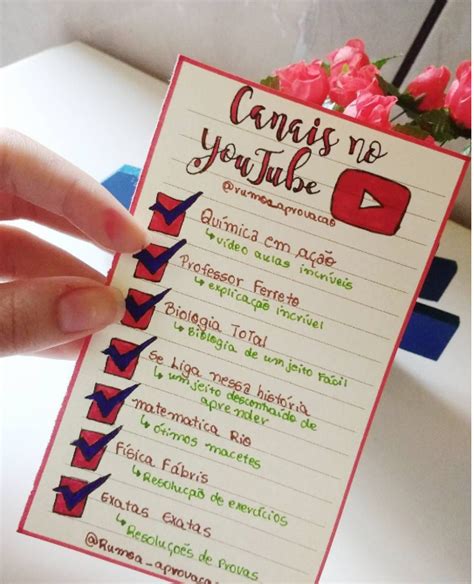 Canais no
YouTube
@rumoa_aprovacao
Química em ação
↳ vídeo aulas incríveis
Professor Ferreto
↳ explicação incrível
Biologia Total
↳ Biologia de um jeito fácil
Se Liga nessa história
↳ um jeito descontraído de
aprender
matematica Rio
↳ ótimos macetes
Física Fábris
↳ Resolução de exercícios
Exatas Exatas
↳ Resoluções de Provas
@Rumoa_aprovaca